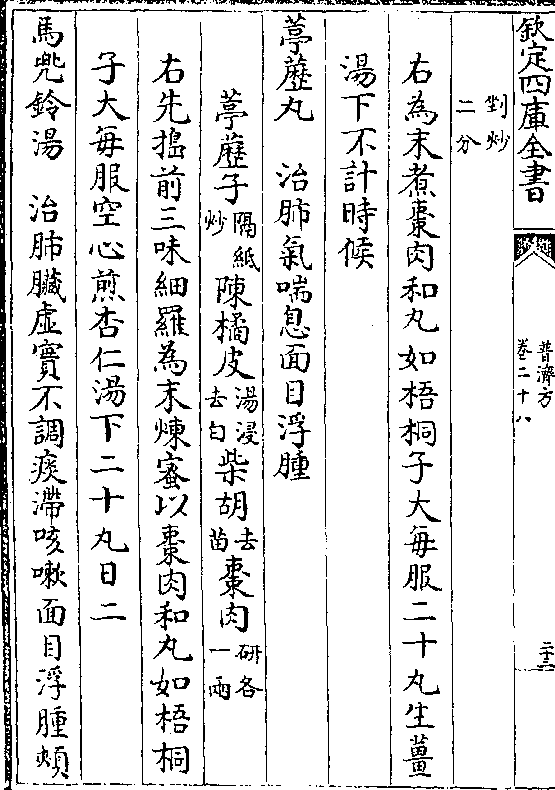 欽定四庫全書
普濟方
卷二十八
二十三
剉炒
二分
右為末煮棗肉和丸如梧桐子大每服二十丸生薑
湯下不計時候
葶藶丸　治肺氣喘息面目浮腫
葶藶子隔紙炒陳橘皮湯浸去白柴胡去苗棗肉研各一兩
右先搗前三味細羅為末煉蜜以棗肉和丸如梧桐
子大每服空心煎杏仁湯下二十丸日二
馬兜鈴湯　治肺臟虛實不調痰滯咳嗽面目浮腫頰